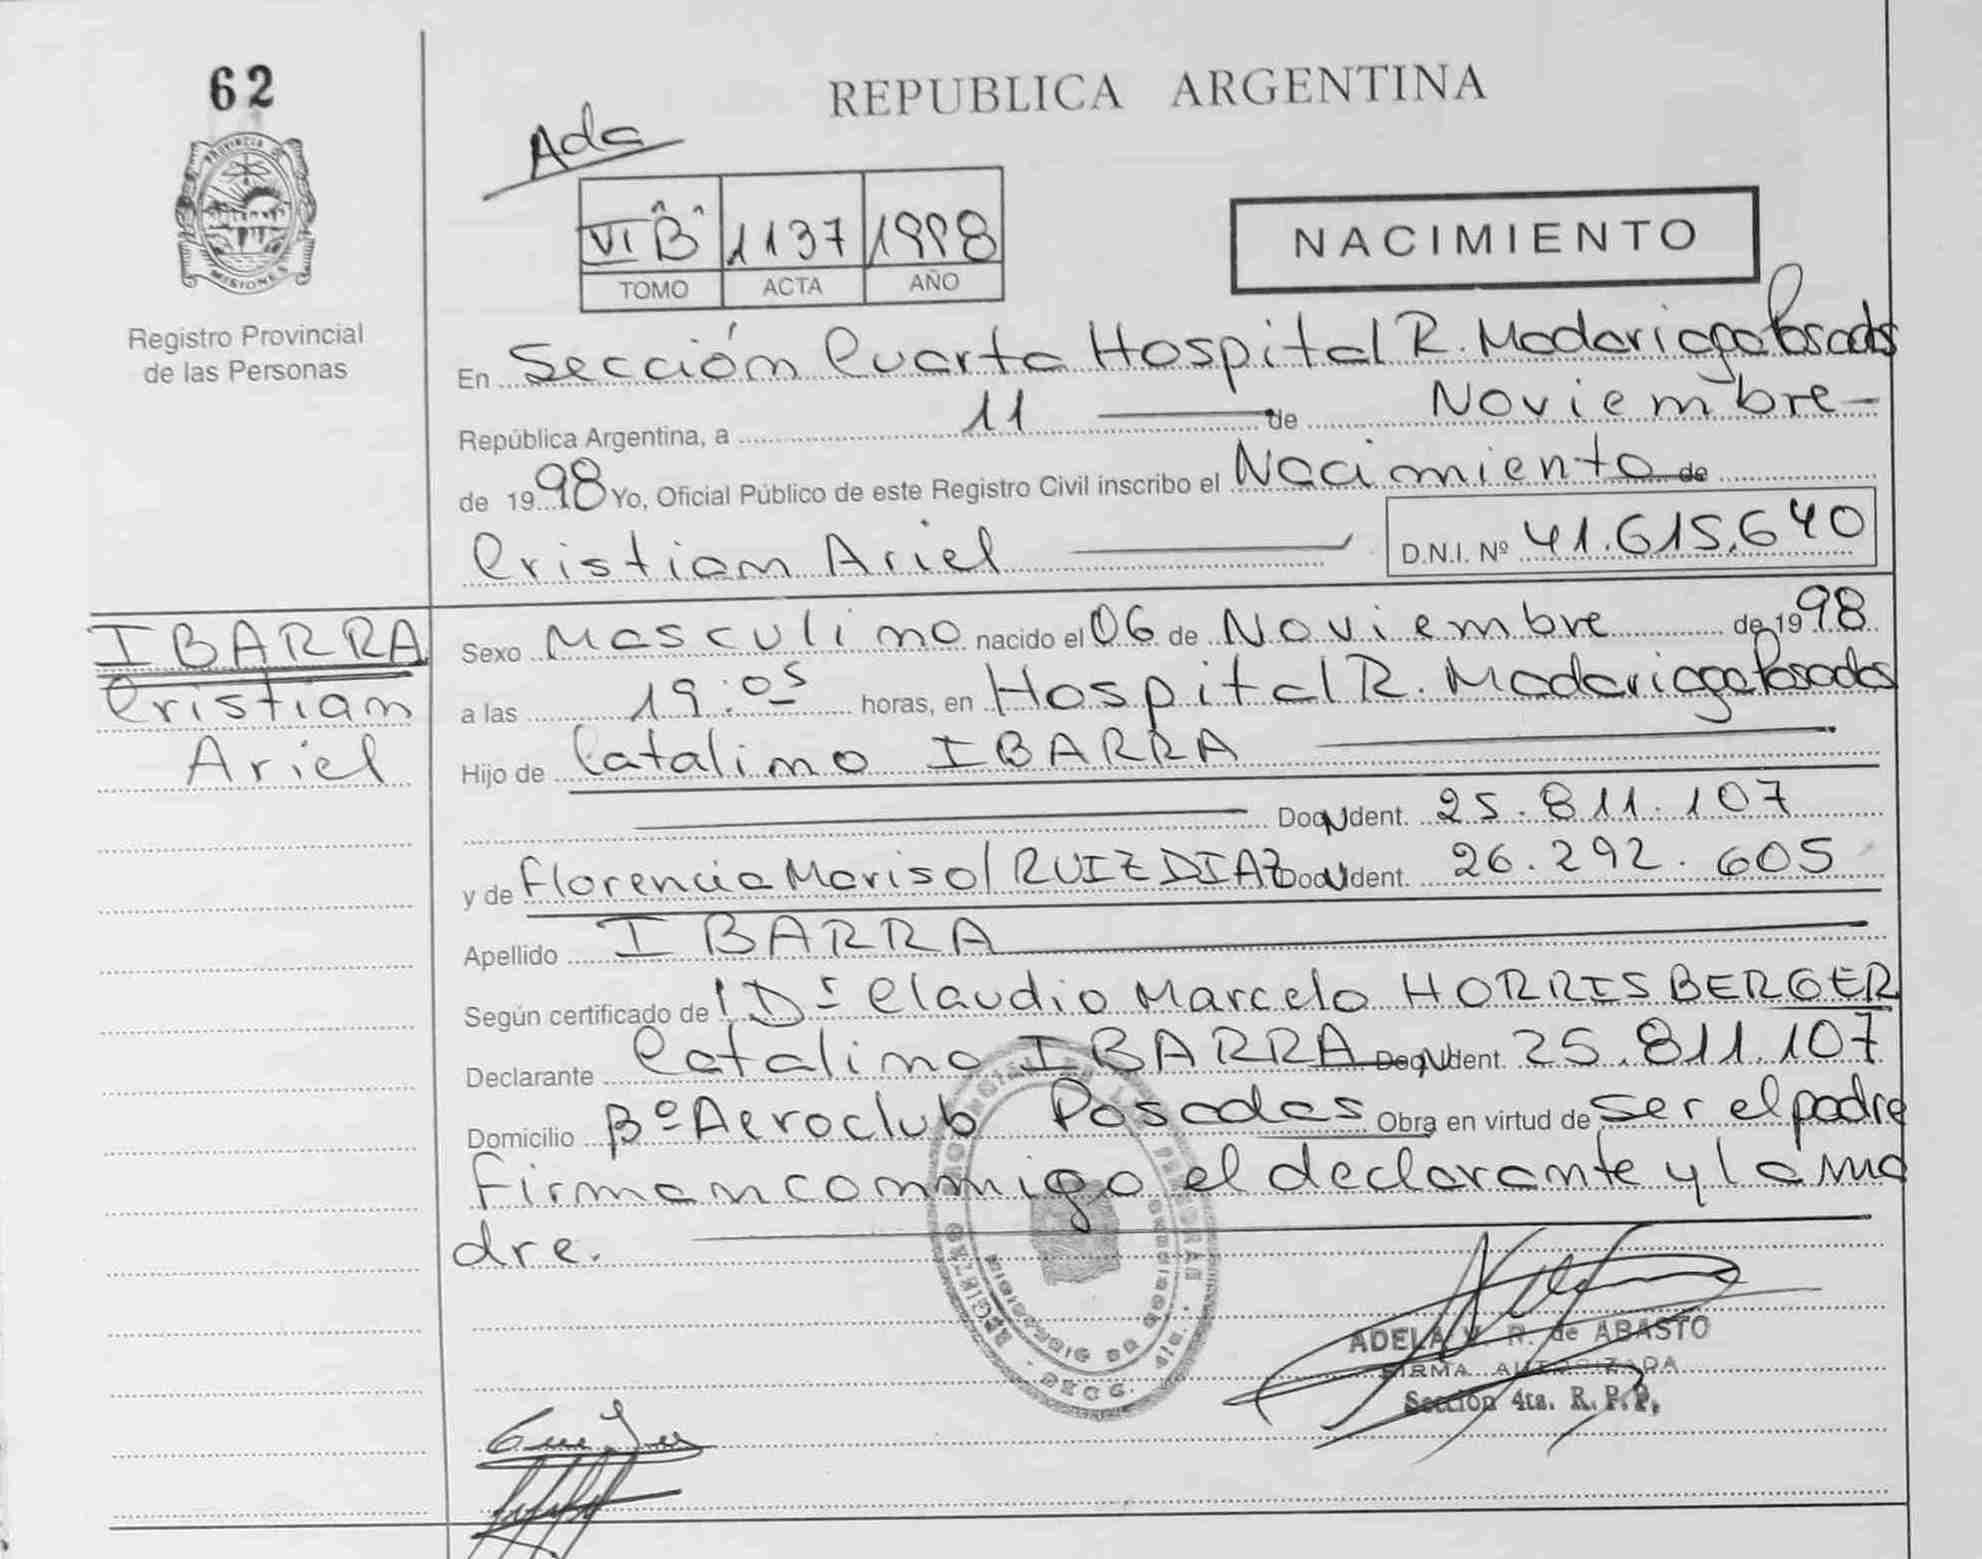 62
REPUBLICA ARGENTINA
PROVINCIA DE
MISIONES
Registro Provincial
de las Personas
Ada
VI "B" 1137 1998
TOMO ACTA AÑO
NACIMIENTO
En Sección Cuarta Hospital R. Madariaga Posadas
República Argentina, a 11 de Noviembre
de 1998 Yo, Oficial Público de este Registro Civil inscribo el Nacimiento de
Cristian Ariel D.N.I. Nº 41.615.640
IBARRA
Cristian
Ariel
Sexo Masculino nacido el 06 de Noviembre de 1998
a las 19:05 horas, en Hospital R. Madariaga Posadas
Hijo de Catalino IBARRA
Doc. Ident. 25.811.107
y de Florencia Marisol RUIZ DIAZ Doc. Ident. 26.292.605
Apellido IBARRA
Según certificado de Dr Claudio Marcelo HORRISBERGER
Declarante Catalino IBARRA Doc. Ident. 25.811.107
Domicilio Bº Aeroclub Posadas Obra en virtud de ser el padre
Firman conmigo el declarante y la ma
dre.
ADELA R. de ABASTO
FIRMA AUTORIZADA
Sección 4ta. R.P.P.